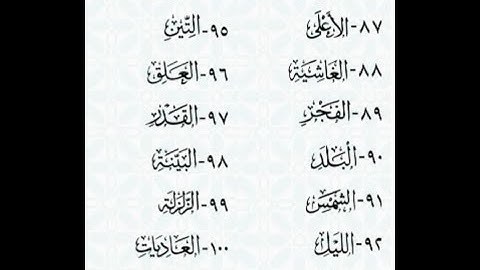 ٨٧-الأَعْلَى
٨٨-الغَاشِيَة
٨٩-الفَجْرِ
٩٠-البَلَدِ
٩١-الشَّمْسِ
٩٢-اللَّيْلِ
٩٥-التِّينِ
٩٦-العَلَقِ
٩٧-القَدْرِ
٩٨-البَيِّنَةِ
٩٩-الزَّلْزَلَةِ
١٠٠-العَادِيَاتِ